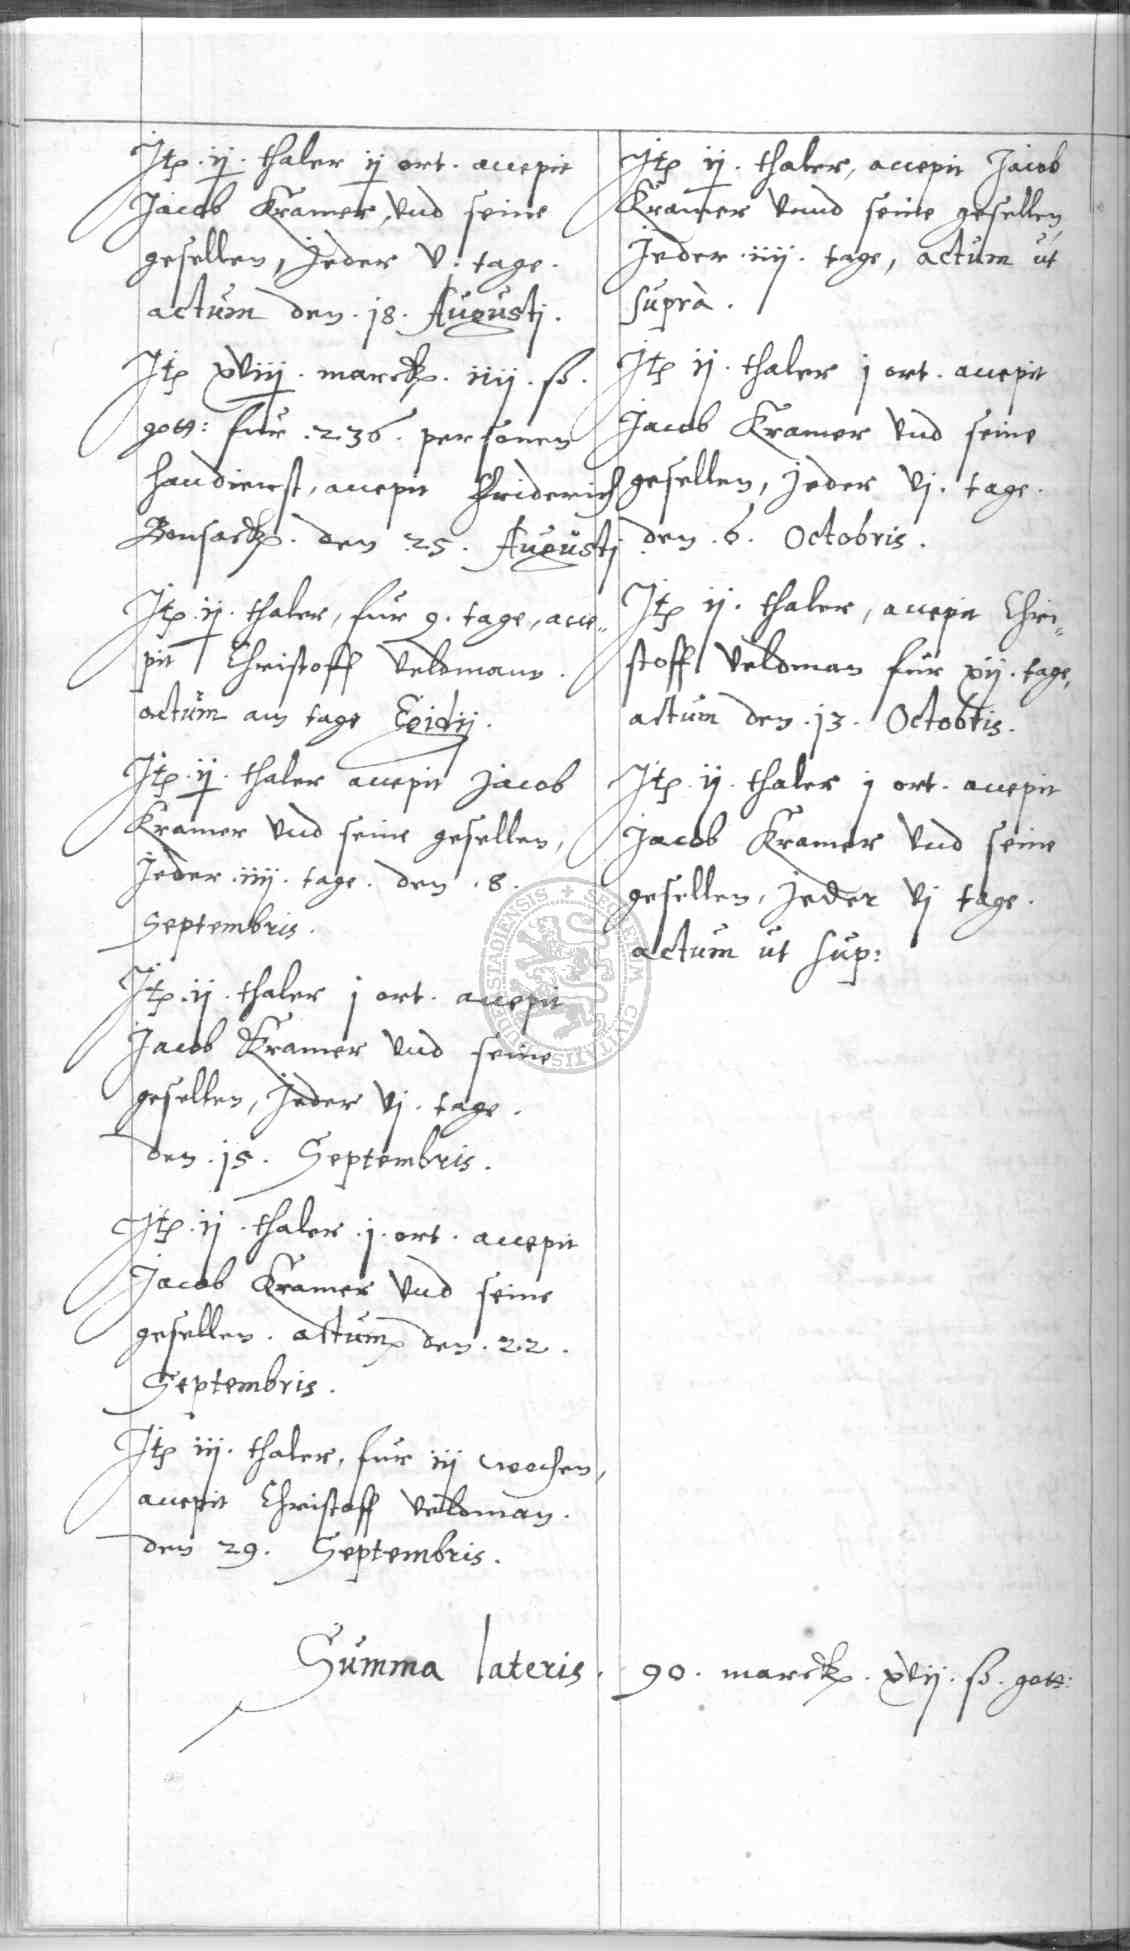 Itp .ij. thaler ij ort. accepit
Jacob Kramer, vnd seine
gesellen, Jeder v. tage.
actum den .18. Augustj.
Itp xviij. marck. iiij. ß.
gott: fur .236. personen
handienst, accepit Friderich
Bonsack. den 25. Augustj
Itp .ij. thaler, fur 9. tage, acce-
pit Christoff Veldmann.
actum am tage Egidij.
Itp .ij. thaler accepit Jacob
Kramer vnd seine gesellen,
Jeder .iiij. tage. den .8.
Septembris.
Itp .ij. thaler j ort. accepit
Jacob Kramer vnd seine
gesellen, Jeder vj. tage.
den .15. Septembris.
Itp .ij. thaler .j. ort. accepit
Jacob Kramer vnd seine
gesellen. actum den .22.
Septembris.
Itp iij. thaler, fur iij wochen,
accepit Christoff Veldman.
den 29. Septembris.
Itp ij. thaler, accepit Jacob
Kramer vnnd seine gesellen
Jeder .iiij. tage, actum ut
suprà.
Itp ij. thaler j ort. accepit
Jacob Kramer vnd seine
gesellen, Jeder vj. tage.
den .6. Octobris.
Itp ij. thaler, accepit Chri-
stoff Veldman fur xij. tage,
actum den .13. Octobris.
Itp .ij. thaler j ort. accepit
Jacob Kramer vnd seine
gesellen, Jeder vj tage.
actum ut sup:
Summa lateris. 90. marck. xvij. ß. gott:
SECRETUM CIVITATIS DUDERSTADIENSIS